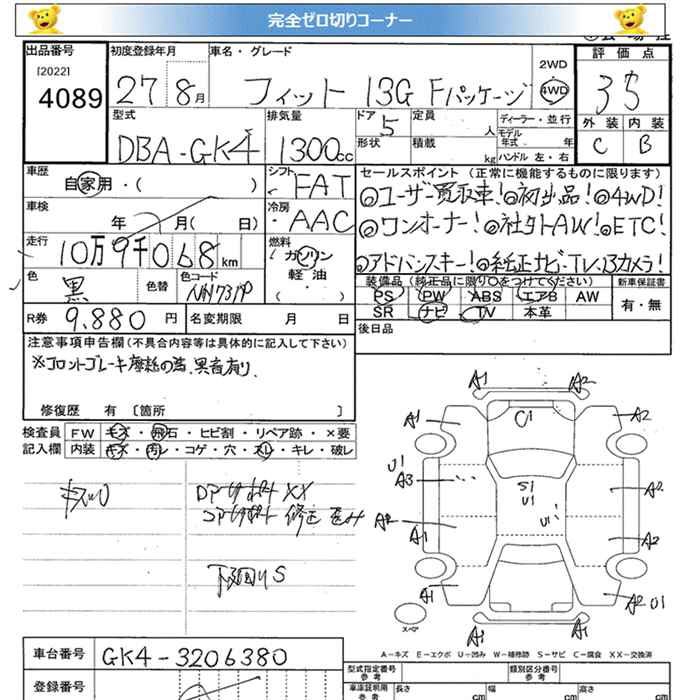 完全ゼロ切りコーナー
出品番号
[2022]
4089
初度登録年月
27 8月
車名・グレード
フィット 13G Fパッケージ
2WD
4WD
評価点
35
外装 内装
C B
型式
DBA-GK4
排気量
1300cc
ドア
5
形状
定員
人
積載
kg
ディーラー・並行
モデル
年式 年
ハンドル 左・右
車歴
自家用・( )
シフト
FAT
車検
年 月( 日)
冷房
AAC
走行
10万9千068km
燃料
ガソリン
軽油
・( )
色
黒
色替
色コード
NH731P
R券
9.880円
名変期限 月 日
セールスポイント (正常に機能するものに限ります)
◎ユーザー買取車!◎初出品!◎4WD!
◎ワンオーナー!◎社外AW!◎ETC!
◎アドバンスキー!◎純正ナビ・TV・Bカメラ!
装備品 (純正品に限り○をつけてください)
新車保証書
PS PW ABS エアB AW
SR ナビ TV 本革
有・無
後日品
注意事項申告欄(不具合内容等は具体的に記入して下さい)
※フロントブレーキ摩耗の為、異音有り.
修復歴 有 [箇所 ]
検査員
記入欄
FW キズ・飛石・ヒビ割・リペア跡・×要
内装 キズ・汚レ・コゲ・穴・スレ・キレ・破レ
XX
コアサポート 修正 歪み
下回りS
A1 A2
A1 C1 A2
U1
A3 S1 A2
U1
A2 U1
A1 A2
A1 A2 U1
A1 A1
スペア
A-キズ E-エクボ U-凹み W-補修跡 S-サビ C-腐食 XX-交換済
車台番号
GK4-3206380
登録番号
型式指定番号
参考
類別区分番号
参考
車庫証明用
参考
長さ cm
幅 cm
高さ cm